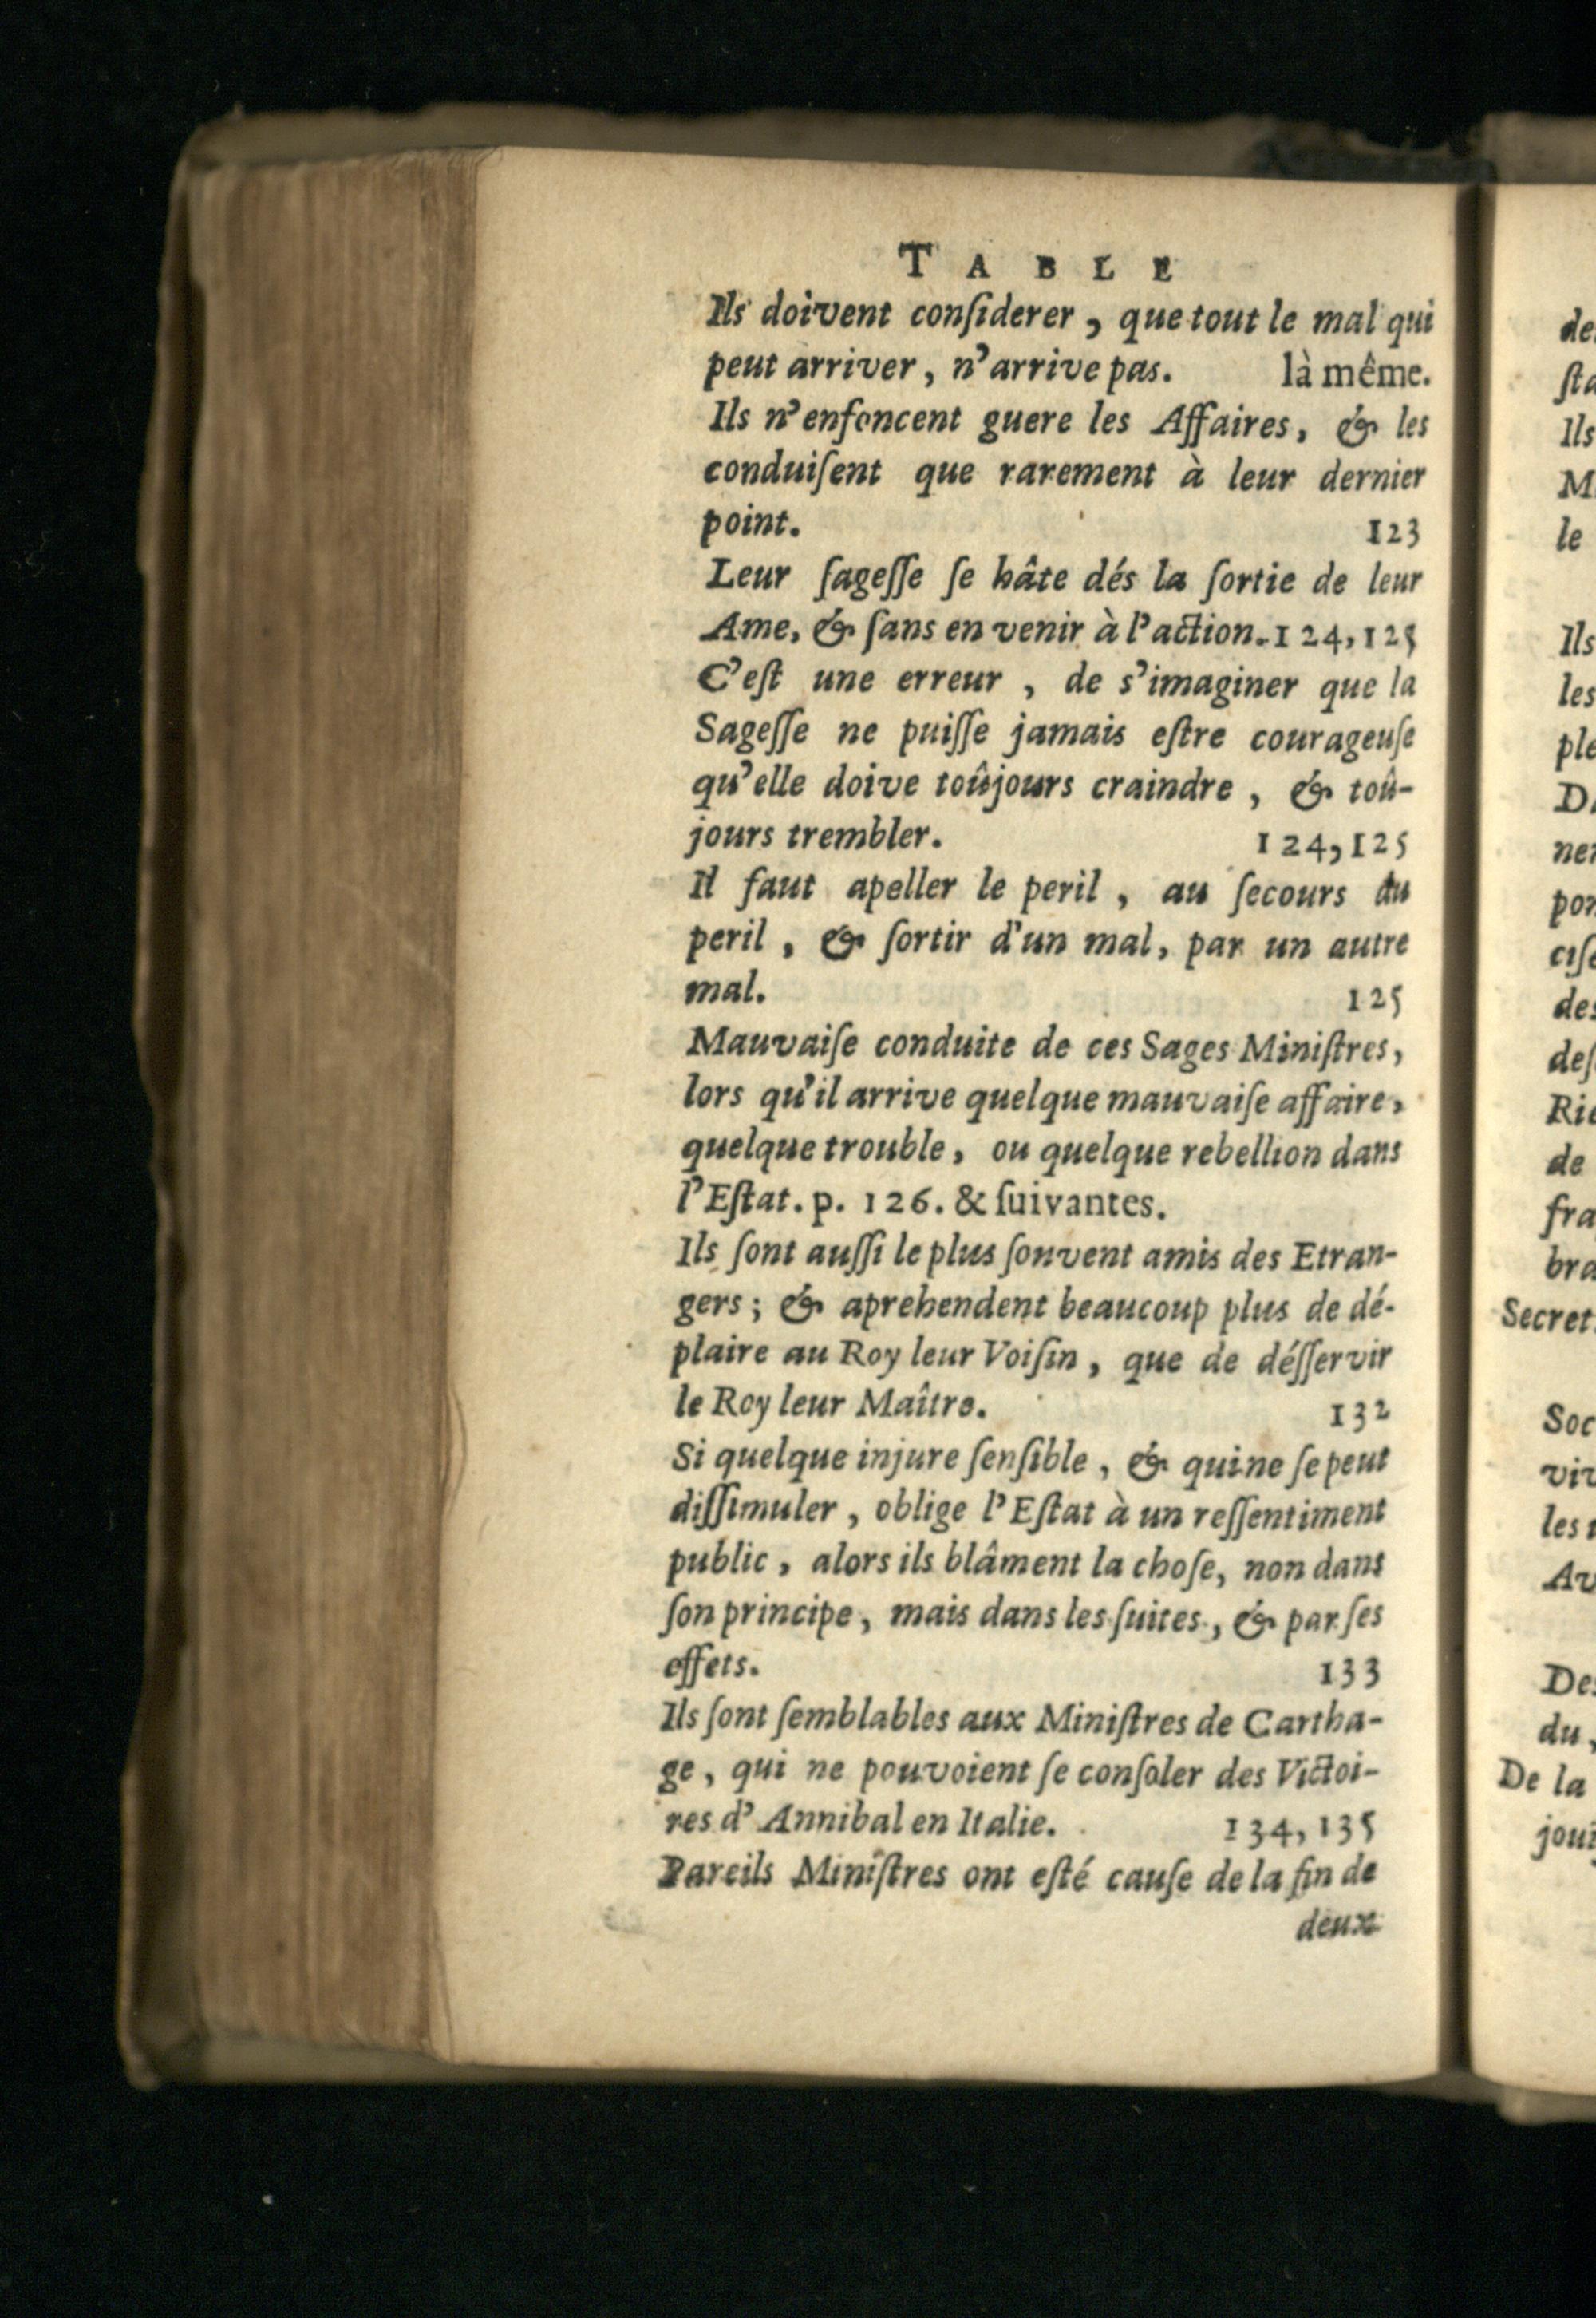 TABLE
Ils doivent conſiderer, que tout le mal qui
peut arriver, n'arrive pas. là même.
Ils n'enfoncent guere les Affaires, & les
conduiſent que rarement à leur dernier
point. 123
Leur ſageſſe ſe hâte dés la ſortie de leur
Ame, & ſans en venir à l'action. 124, 125
C'eſt une erreur, de s'imaginer que la
Sageſſe ne puiſſe jamais eſtre courageuſe
qu'elle doive toûjours craindre, & toû-
jours trembler. 124, 125
Il faut apeller le peril, au ſecours du
peril, & ſortir d'un mal, par un autre
mal. 125
Mauvaiſe conduite de ces Sages Miniſtres,
lors qu'il arrive quelque mauvaiſe affaire,
quelque trouble, ou quelque rebellion dans
l'Eſtat. p. 126. & ſuivantes.
Ils ſont auſſi le plus ſouvent amis des Etran-
gers; & aprehendent beaucoup plus de dé-
plaire au Roy leur Voiſin, que de déſſervir
le Roy leur Maître. 132
Si quelque injure ſenſible, & qui ne ſe peut
diſſimuler, oblige l'Eſtat à un reſſentiment
public, alors ils blâment la choſe, non dans
ſon principe, mais dans les ſuites, & par ſes
effets. 133
Ils ſont ſemblables aux Miniſtres de Cartha-
ge, qui ne pouvoient ſe conſoler des Victoi-
res d'Annibal en Italie. 134, 135
Pareils Miniſtres ont eſté cauſe de la fin de
deux
de
ſta
Ils
M
le
Ils
les
ple
D
ner
pon
ciſe
des
deſ
Rie
de
fra
bra
Secret
Soc
viv
les
Av
Des
du,
De la
joui